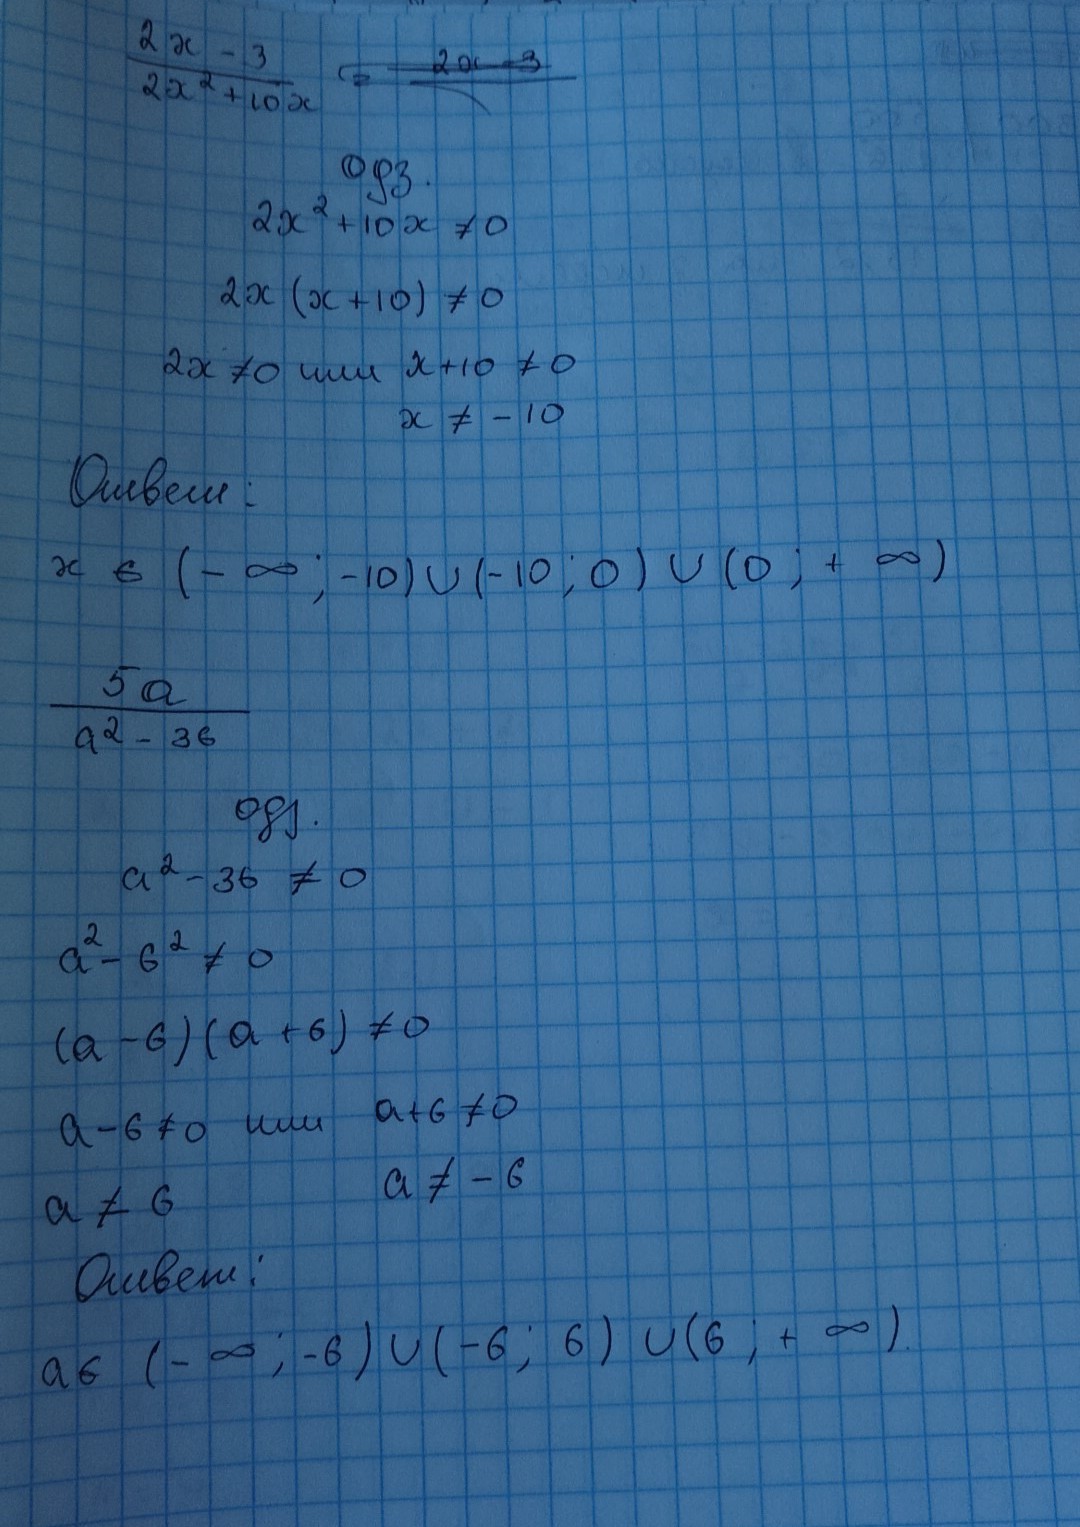 2x - 3 / 2x² + 10x = 2x - 3
ОДЗ.
2x² + 10x ≠ 0
2x (x + 10) ≠ 0
2x ≠ 0 или x + 10 ≠ 0
x ≠ - 10
Ответ:
x ∈ (- ∞ ; -10) ∪ (-10 ; 0) ∪ (0 ; + ∞)
5a / a² - 36
ОДЗ.
a² - 36 ≠ 0
a² - 6² ≠ 0
(a - 6) (a + 6) ≠ 0
a - 6 ≠ 0 или a + 6 ≠ 0
a ≠ 6 a ≠ - 6
Ответ:
a ∈ (- ∞ ; -6) ∪ (-6 ; 6) ∪ (6 ; + ∞).